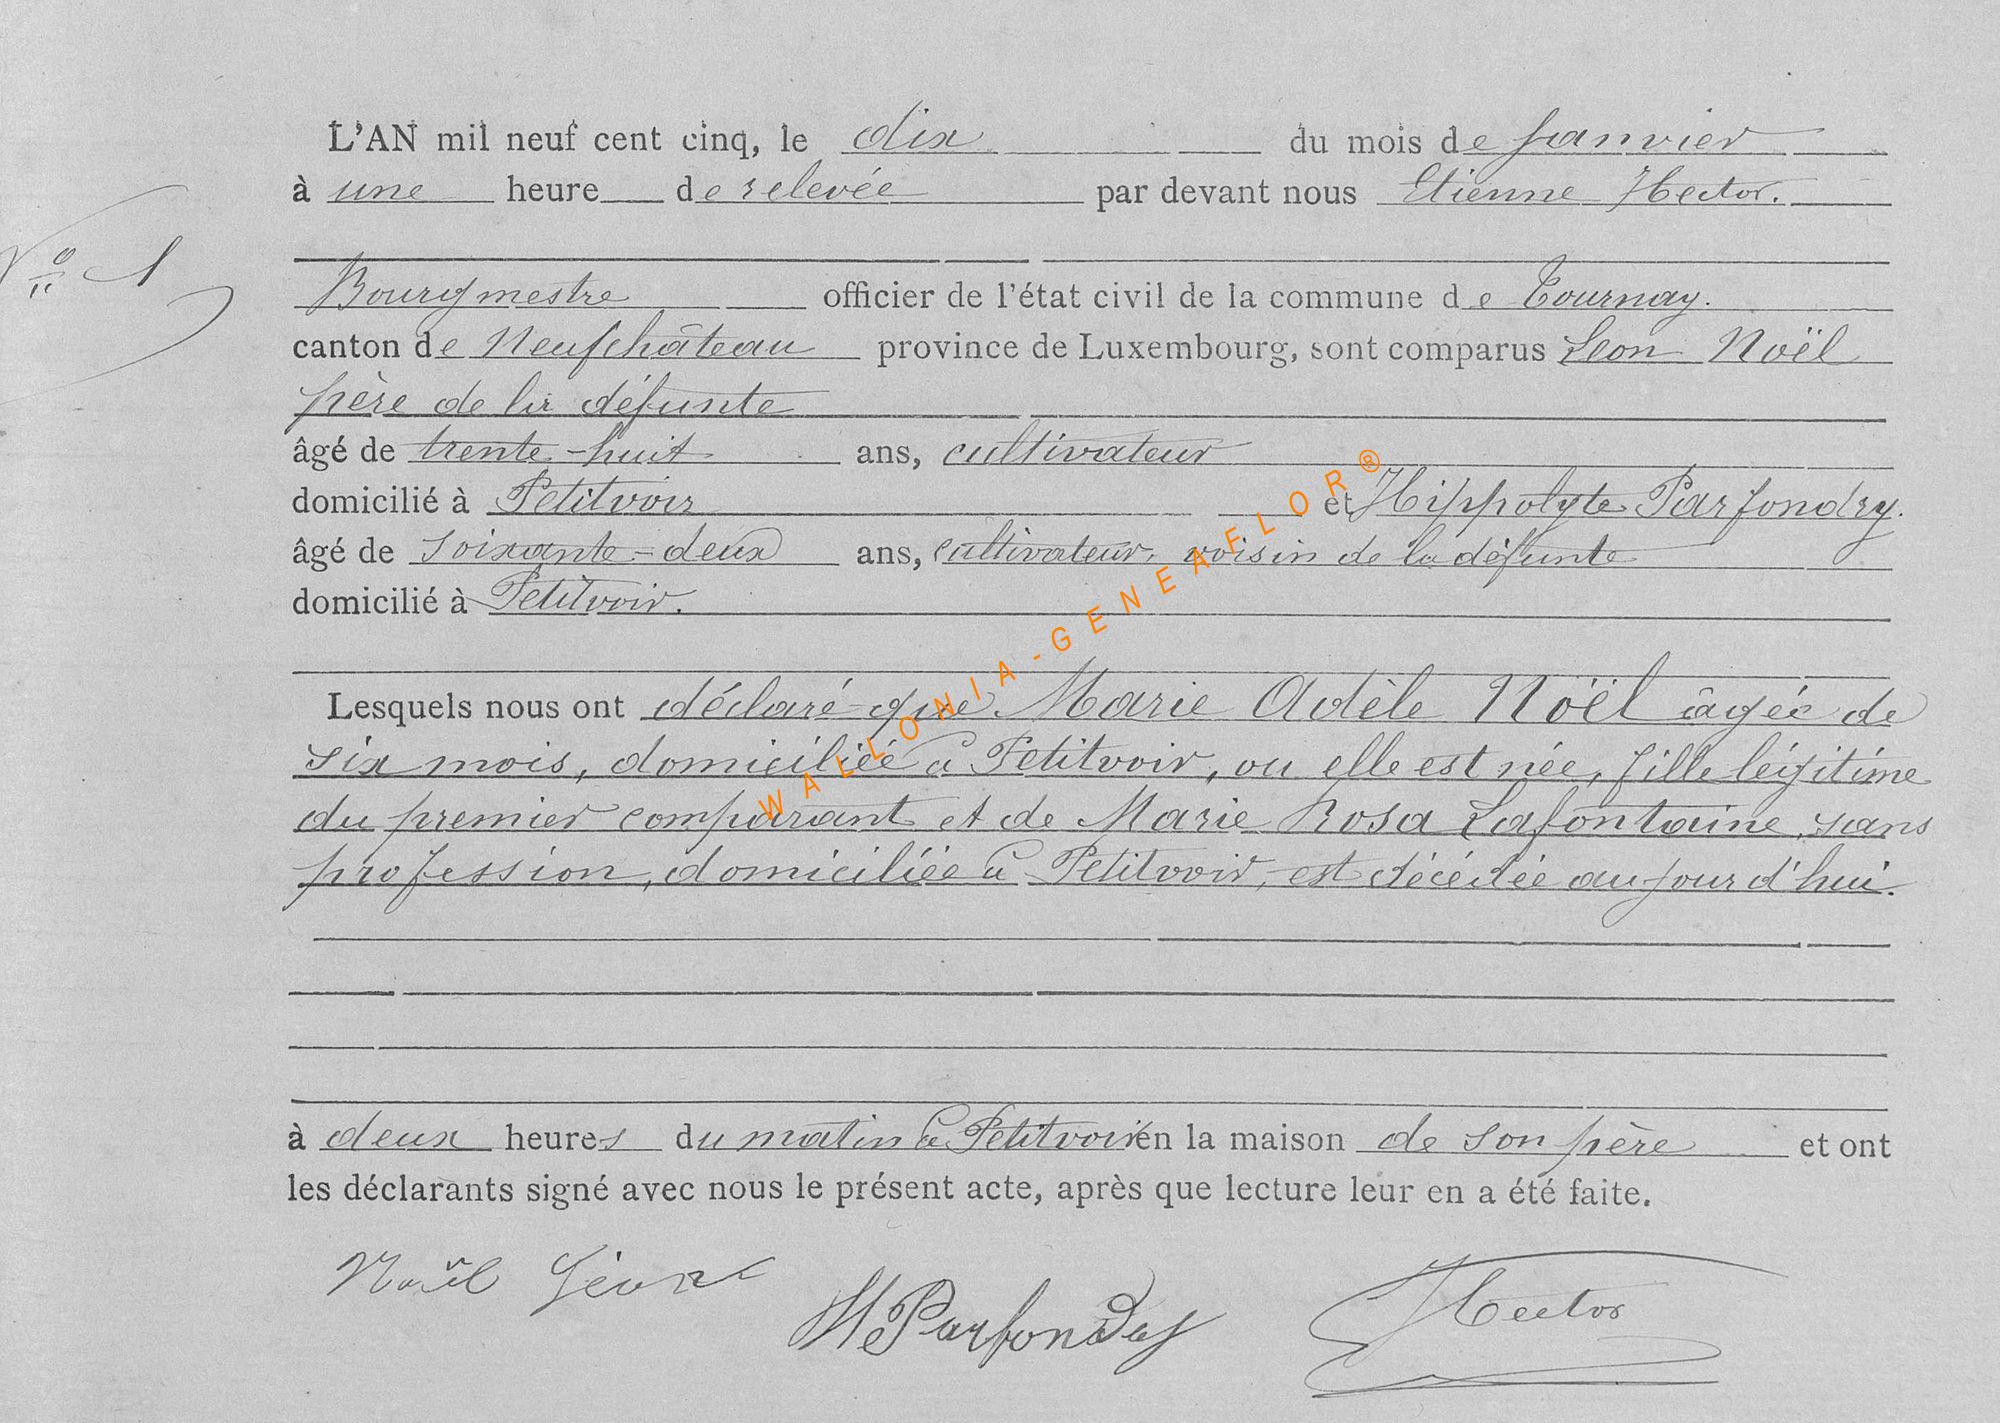 L'AN mil neuf cent cinq, le dix du mois de Janvier
à une heure de relevée par devant nous Etienne Hector.
N° 1
Bourgmestre officier de l'état civil de la commune de Tournay.
canton de Neufchâteau province de Luxembourg, sont comparus Léon Noël
père de la défunte
âgé de trente-huit ans, cultivateur
domicilié à Petitvoir et Hippolyte Parfondry.
âgé de soixante-deux ans, cultivateur, voisin de la défunte
domicilié à Petitvoir.
Lesquels nous ont déclaré que Marie Adèle Noël âgée de
six mois, domiciliée à Petitvoir, ou elle est née, fille légitime
du premier comparant et de Marie Rosa Lafontaine, sans
profession, domiciliée à Petitvoir, est décédée aujourd'hui.
à deux heures du matin à Petitvoir en la maison de son père et ont
les déclarants signé avec nous le présent acte, après que lecture leur en a été faite.
Noël Léon
H Parfondry
Hector
WALLONIA-GENEAFLOR®